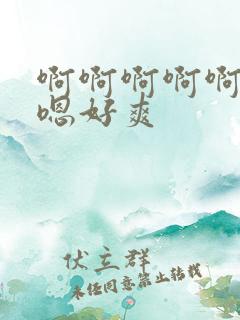 啊啊啊啊啊
嗯好爽
伏立群
未经同意禁止转载